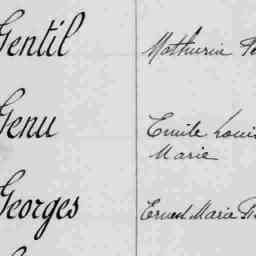 Gentil Mathurin
Genu Emile Louis
Marie
Georges Ernest Marie